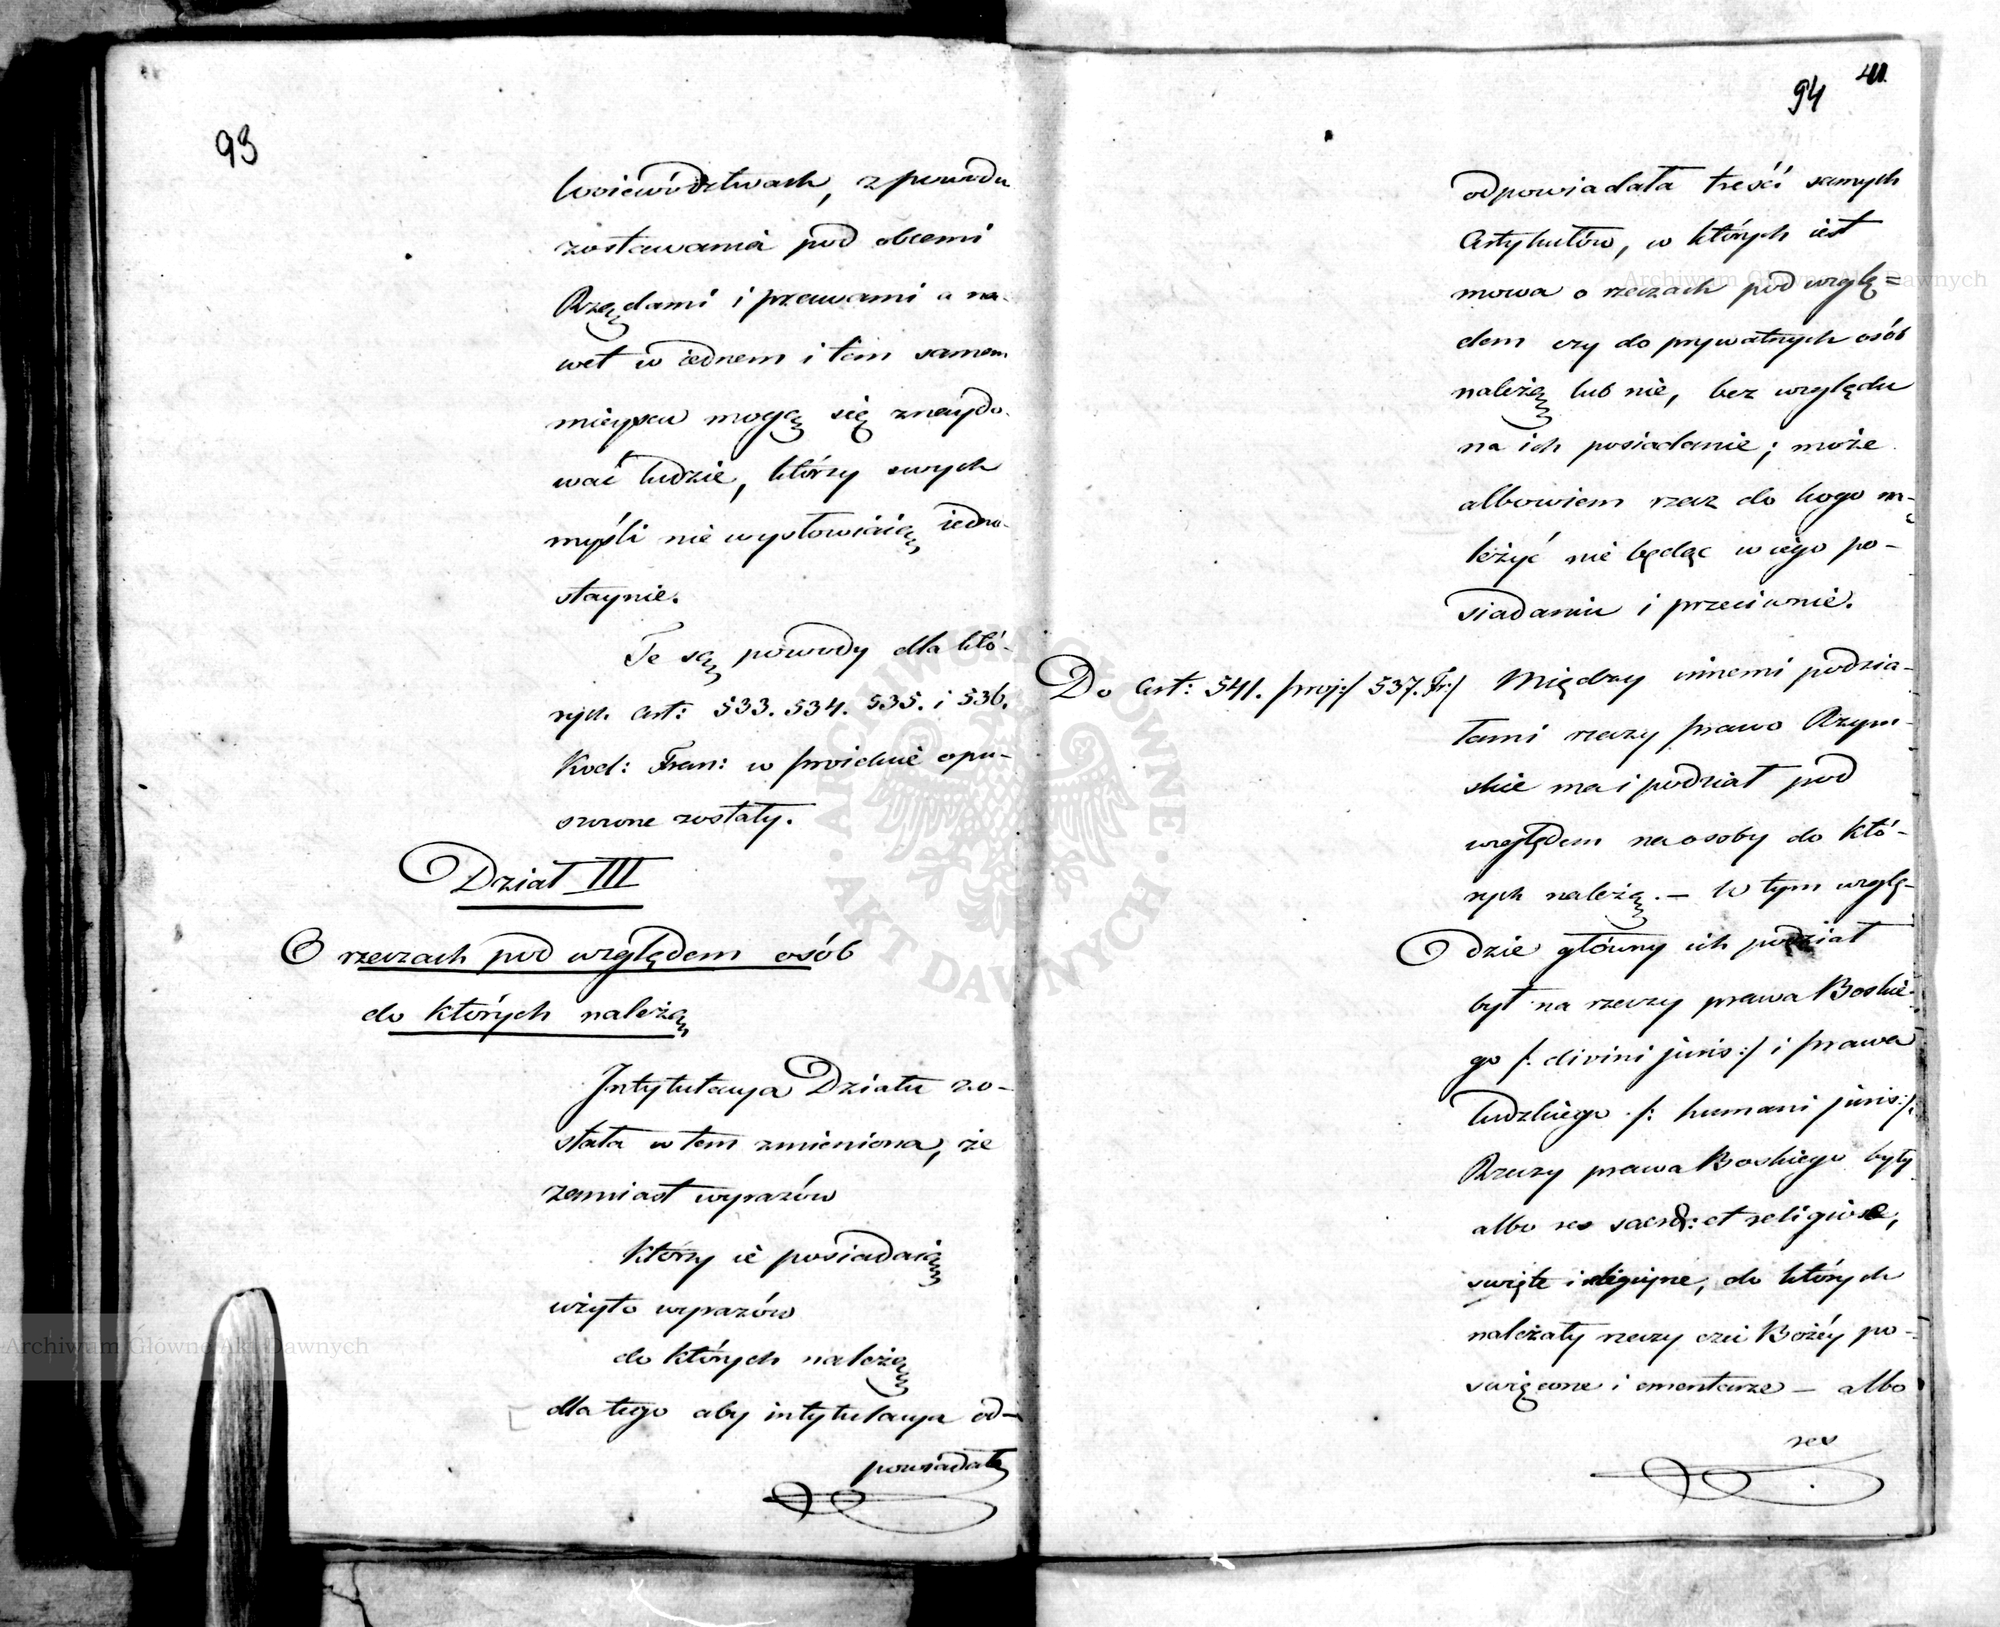 93
Woiewództwach, z powodu
zostawania pod obcemi
Rządami i prawami a na-
wet w iednem i tem samem
mieyscu mogą się znaydo-
wać ludzie, którzy swych
myśli nie wysłowiaią iedno-
staynie.
Te są powody dla któ-
rych Art: 533. 534. 535. i 536.
Kod: Fran: w proiekcie opu-
szczone zostały.
Dział III
O rzeczach pod względem osób
do których należą
Intytulacya Działu zo-
stała w tem zmieniona, że
zamiast wyrazów
którzy ie posiadaią
użyto wyrazów
do których należą
dla tego aby intytulacya od-
powiadała
94 41.
odpowiadała treści samych
Artykułów, w których iest
mowa o rzeczach pod wzglę=
dem czy do prywatnych osób
należą lub nie, bez względu
na ich posiadanie; może
albowiem rzecz do kogo na-
leżyć nie będąc w iego po-
siadaniu i przeciwnie.
Do Art: 541. proj:/ 537. Fr:/ Między innemi podzia-
łami rzeczy prawo Rzym-
skie ma i podział pod
względem na osoby do któ-
rych należą. — W tym wzglę-
dzie główny ich podział
był na rzeczy prawa Boskie-
go /: divini juris :/ i prawa
ludzkiego /: humani juris :/.
Rzeczy prawa Boskiego były
albo res sacrae et religiosae,
święte i religijne, do których
należały rzeczy czci Bożéy po-
święcone i cmentarze — albo
res
Archiwum Główne Akt Dawnych
Archiwum Główne Akt Dawnych
ARCHIWUM GŁÓWNE · AKT DAWNYCH ·